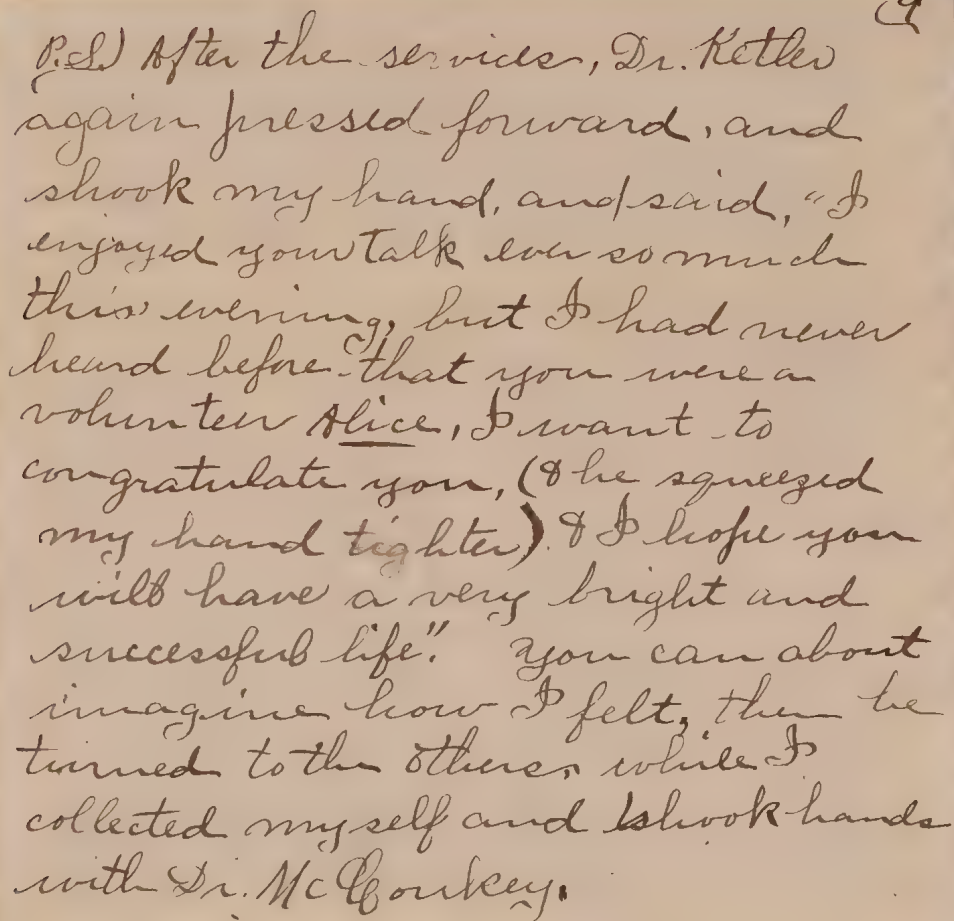 (9
P.S.) After the services, Dr. Ketler
again pressed forward, and
shook my hand, and said, "I
enjoyed your talk ever so much
this evening, but I had never
heard before that you were a
volunteer Alice, I want to
congratulate you, (& he squeezed
my hand tighter). & I hope you
will have a very bright and
successful life". You can about
imagine how I felt, then he
turned to the others, while I
collected myself and shook hands
with Dr. McConkey.